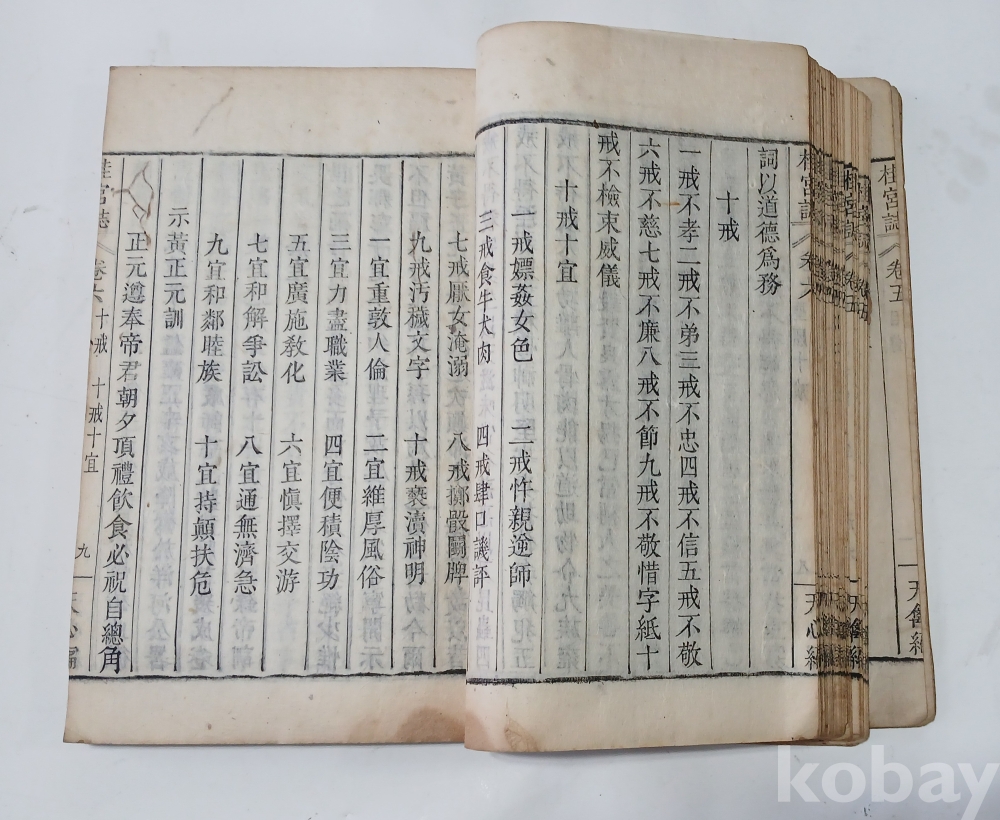 桂宮誌 卷五
桂宮誌 卷六
詞以道德爲務
十戒
一戒不孝二戒不弟三戒不忠四戒不信五戒不敬
六戒不慈七戒不廉八戒不節九戒不敬惜字紙十
戒不檢束威儀
十戒十宜
一戒嫖姦女色 二戒忤親逆師
三戒食牛犬肉 四戒肆口譏評
七戒厭女淹溺 八戒擲骰鬬牌
九戒汚穢文字 十戒褻瀆神明
一宜重敦人倫 二宜維厚風俗
三宜力盡職業 四宜便積陰功
五宜廣施敎化 六宜愼擇交游
七宜和解爭訟 八宜通無濟急
九宜和鄰睦族 十宜持顚扶危
示黃正元訓
正元遵奉帝君朝夕頂禮飮食必祝自總角
桂宮誌 卷六 十戒 十戒十宜 九
kobay